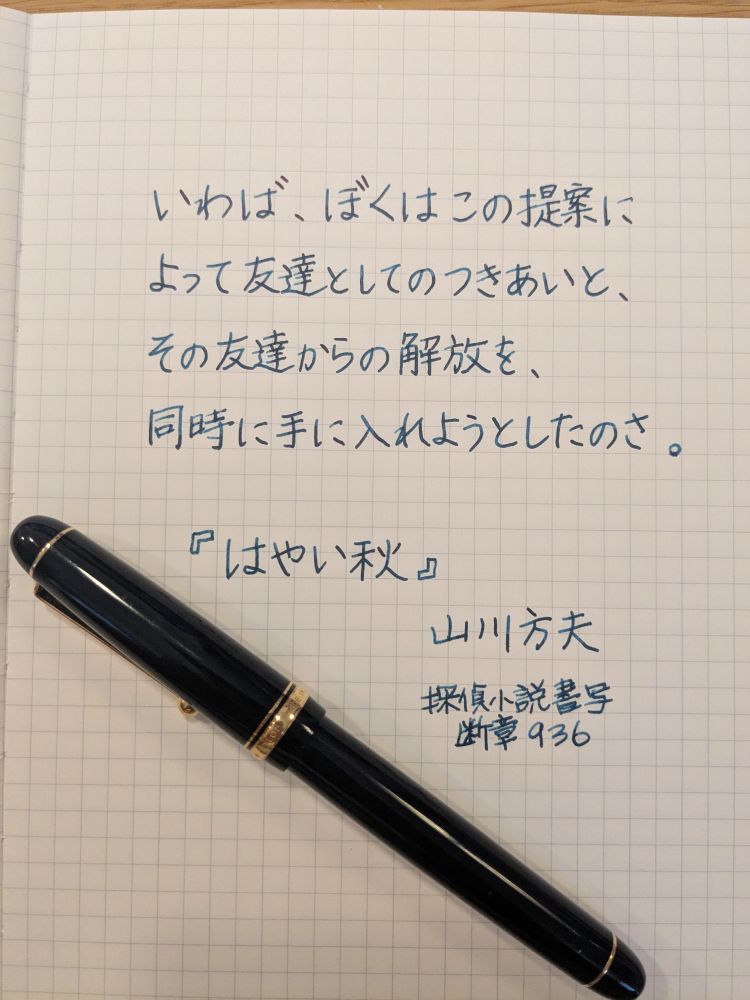 いわば、ぼくはこの提案に
よって友達としてのつきあいと、
その友達からの解放を、
同時に手に入れようとしたのさ。
『はやい秋』
山川方夫
探偵小説書写
断章936